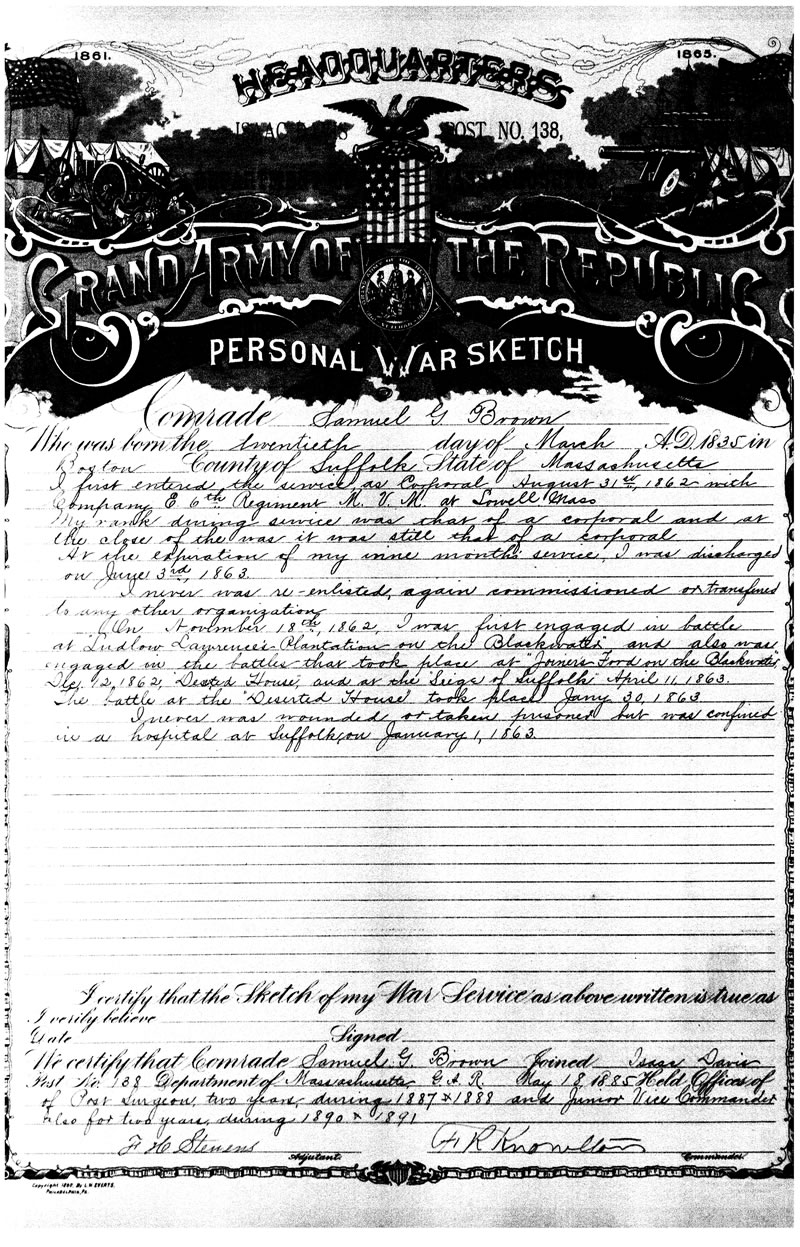 1861. 1865.
HEADQUARTERS
POST NO. 138,
GRAND ARMY OF THE REPUBLIC
PERSONAL WAR SKETCH
Comrade Samuel G Brown
Who was born the twentieth day of March A.D. 1835 in
Boston County of Suffolk State of Massachusetts
I first entered the service as Corporal August 31st, 1862 with
Company E. 6th Regiment M. V. M. at Lowell Mass
My rank during service was that of a corporal and at
the close of the was it was still that of a corporal
At the expiration of my nine months service, I was discharged
on June 3rd, 1863.
I never was re-enlisted, again commissioned or transferred
to any other organization
On November 18th, 1862, I was first engaged in battle
at "Ludlow Lawrence's Plantation on the Blackwater" and also was
engaged in the battles that took place at "Joiner's Ford on the Blackwater,
Dec. 12, 1862, "Deserted House, and at the Siege of Suffolk April 11, 1863.
The battle at the "Deserted House" took place Jany. 30, 1863.
I never was wounded or taken prisoner but was confined
in a hospital at Suffolk, on January 1, 1863.
I certify that the Sketch of my War Service as above written is true as
I verily believe
Date Signed
We certify that Comrade Samuel G. Brown Joined Isaac Davis
Post No. 138 Department of Massachusetts, G.A.R. May 18, 1885 Held Offices of
of Post Surgeon, two years, during 1887 & 1888 and Junior Vice Commander
also for two years, during 1890 & 1891
F H Stevens F R Knowlton
Adjutant. Commander.
Copyright 1890. By L.H. EVERTS.
PHILADELPHIA, PA.